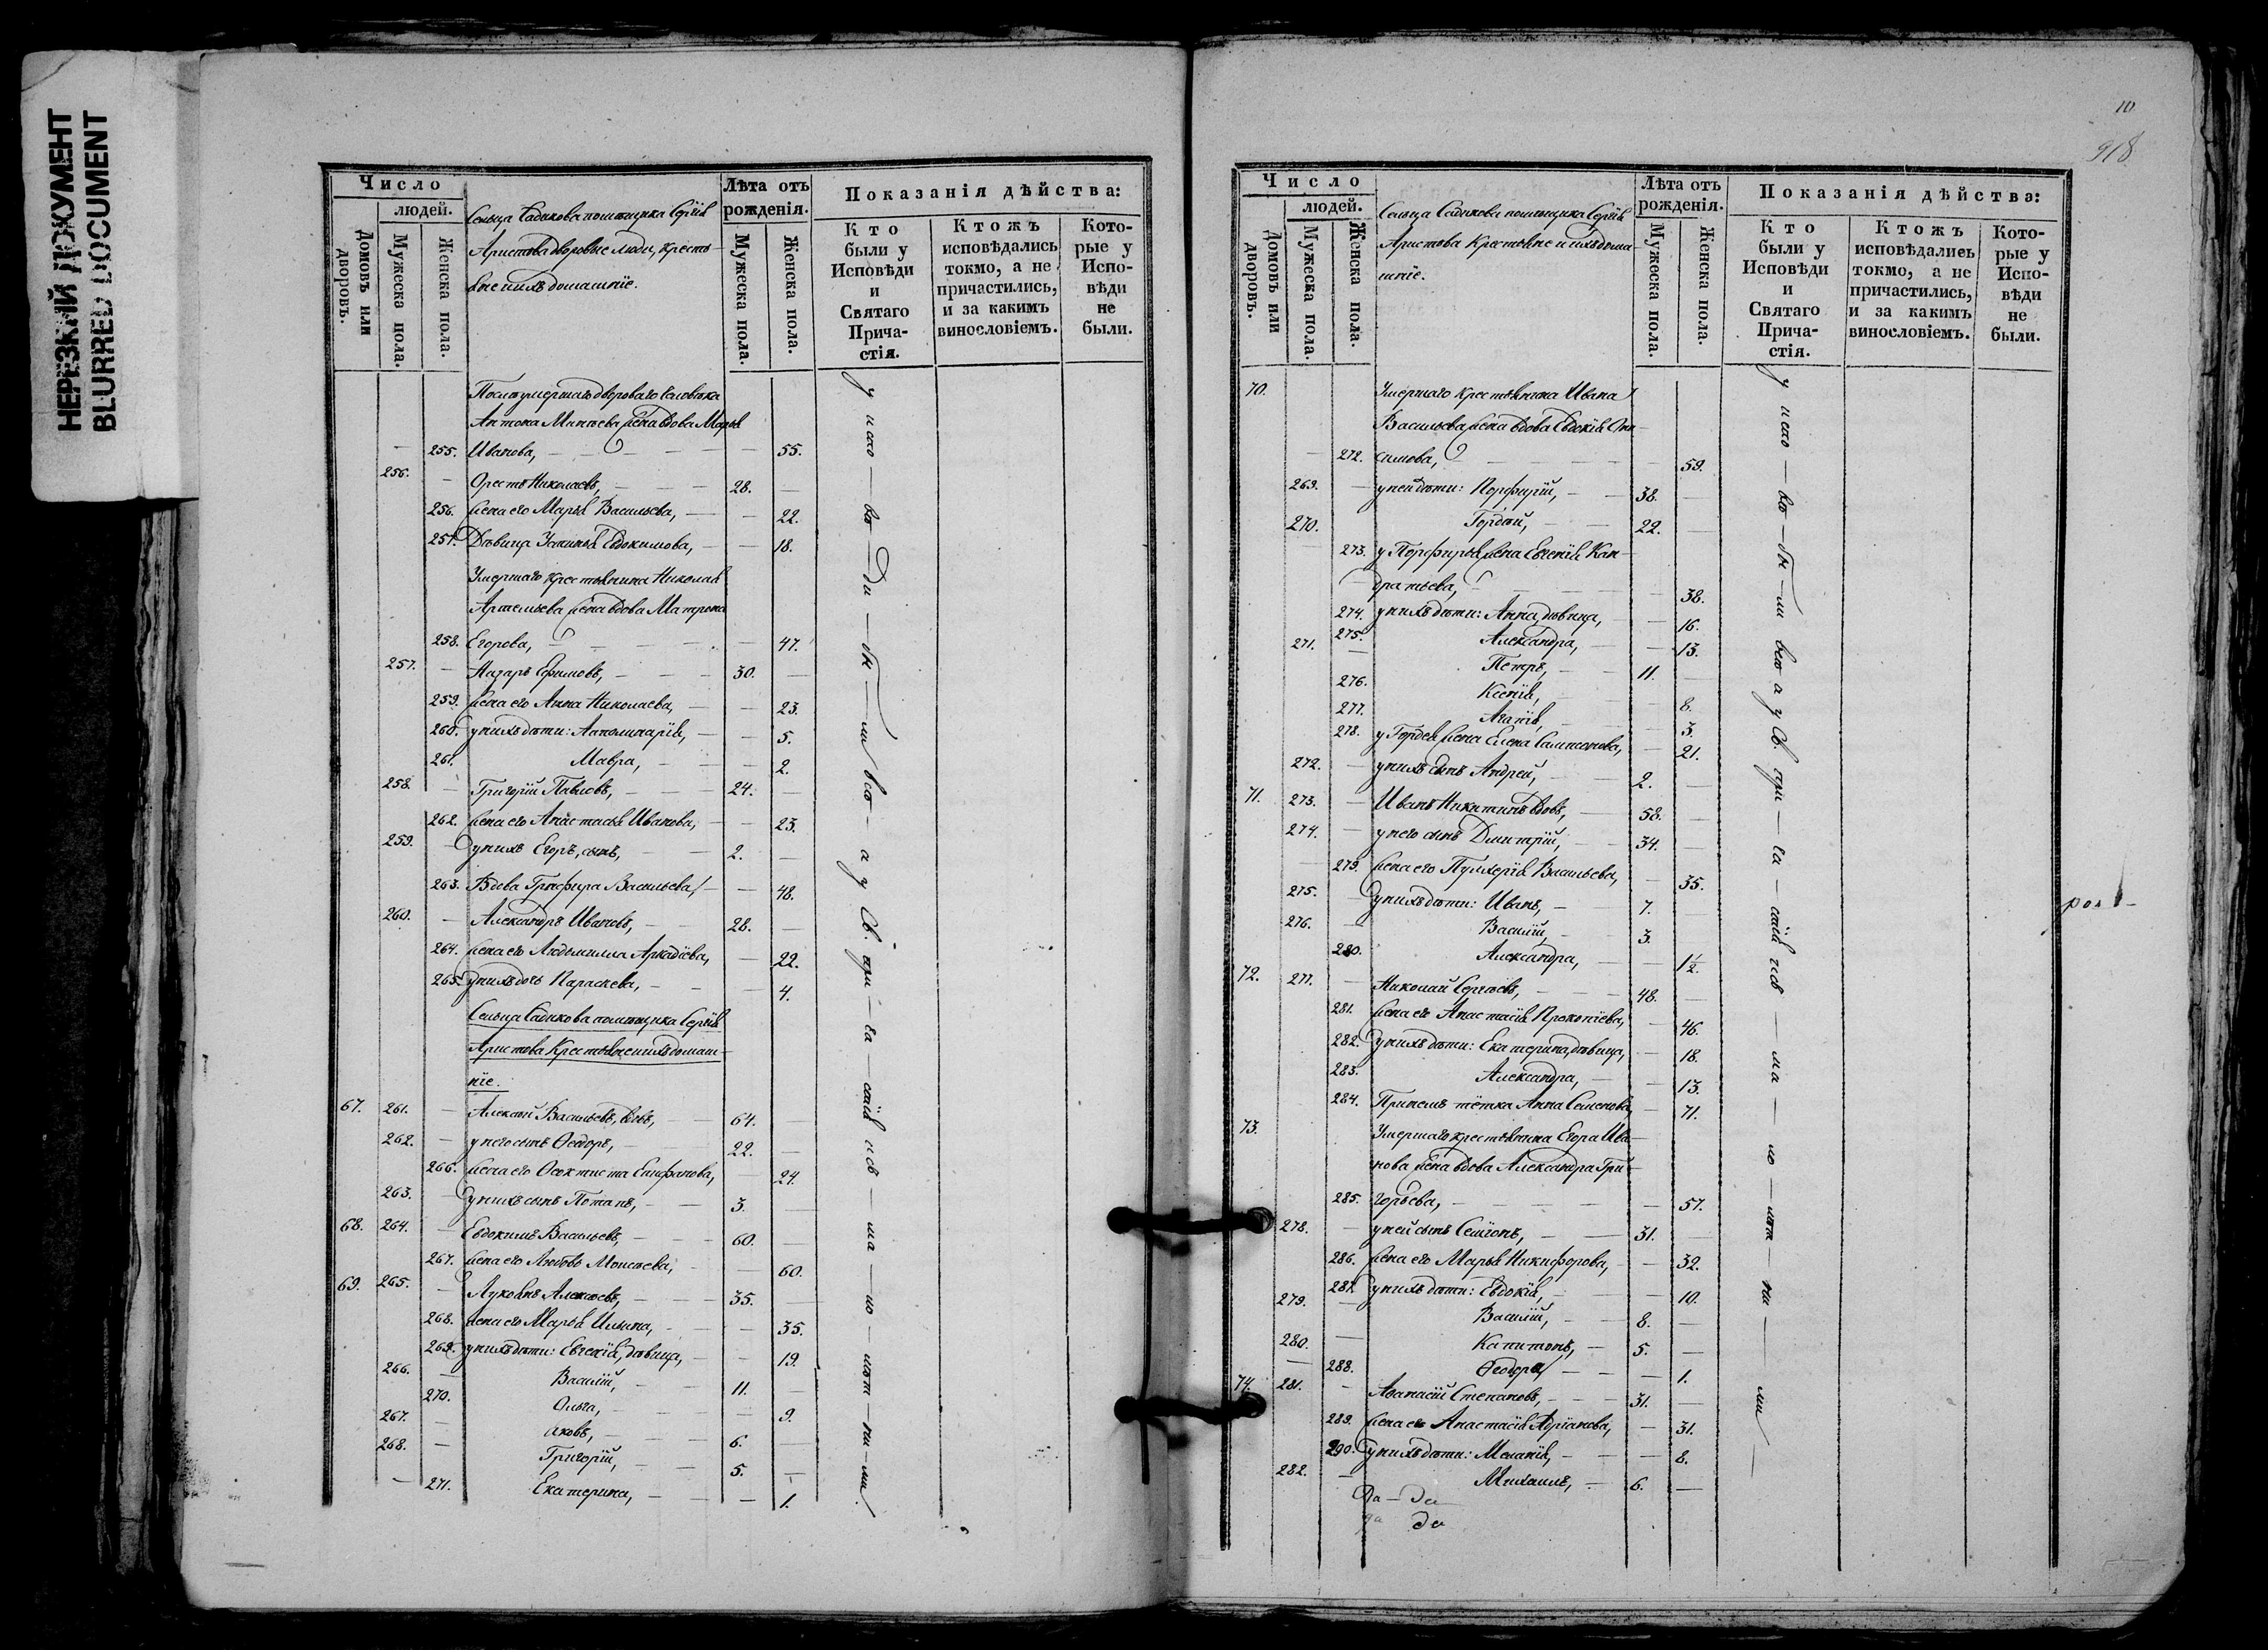 НЕРЕЗКИЙ ДОКУМЕНТ
BLURRED DOCUMENT
Число
людей.
Домовъ или дворовъ.
Мужеска пола.
Женска пола.
Сельца Садикова помѣщика Сергія
Аристова дворовые люди, кресть-
яне и ихъ домашніе.
Лѣта отъ рожденія.
Мужеска пола.
Женска пола.
Показанія дѣйства:
Кто были у Исповѣди и Святаго Прича-стія.
Ктожъ исповѣдались токмо, а не причастились, и за какимъ винословіемъ.
Кото-рые у Испо-вѣди не были.
Послѣ умершаго двороваго человѣка
Антона Минѣева жена вдова Марья
— 255. Иванова, — — 55.
256. — Орестъ Николаевъ, — 28. —
256. жена его Марья Васильева, — — 22.
257. Дѣвица Устинья Евдокимова, — — 18.
Умершаго крестьянина Николая
Артемьева жена вдова Матрона
258. Егорова, — — 47.
257. — Назаръ Ефимовъ, — 30. —
259. жена его Анна Николаева, — — 23.
260. у нихъ дѣти: Апполинарія, — — 5.
261. Мавра, — — 2.
258. — Григорій Павловъ, — 24. —
262. жена его Анастасья Иванова, — — 23.
259. — у нихъ Егоръ, сынъ, 2. —
263. Вдова Гликерія Васильева, — — 48.
260. — Александръ Ивановъ, — 28. —
264. жена его Людмилла Аркадіева, — 22.
265. у нихъ дочь Параскева, — — 4.
Сельца Садикова помѣщика Сергія
Аристова Крестьяне и ихъ домаш-
ніе.
67. 261. — Алексѣй Васильевъ, вдовъ, 64. —
262. — у него сынъ Ѳеодоръ, — 22. —
266. жена его Ѳеоктиста Епифанова, — 24.
263. — у нихъ сынъ Потапъ, — 3. —
68. 264. — Евдокимъ Васильевъ, — 60. —
267. жена его Любовь Моисеева, — 60.
69. 265. — Лукьянъ Алексѣевъ, — 35. —
268. жена его Марья Ильина, — — 35.
269. у нихъ дѣти: Евгенія, дѣвица, — — 19.
266. — Василій, — 11. —
270. Ольга, — — 9.
267. — Яковъ, — 6. —
268. — Григорій, — 5. —
— 271. Екатерина, — — 1.
у испо — вѣ — ди — бы — ли всѣ — а у Св. при — ча — стія исъ — ма — ло — лѣт — ны — ми
10
918
Число
людей.
Домовъ или дворовъ.
Мужеска пола.
Женска пола.
Сельца Садикова помѣщика Сергія
Аристова Крестьяне и ихъ дома-
шніе.
Лѣта отъ рожденія.
Мужеска пола.
Женска пола.
Показанія дѣйства:
Кто были у Исповѣди и Святаго Прича-стія.
Ктожъ исповѣдались токмо, а не причастились, и за какимъ винословіемъ.
Кото-рые у Испо-вѣди не были.
70. Умершаго крестьянина Ивана
Васильева жена вдова Евдокія Они-
— 272. симова, — — 59.
269. — у ней дѣти: Порфирій, — 38. —
270. Гордѣй, — 22. —
273. у Порфирья жена Евгенія Кон-
дратьева, — 38.
274. у нихъ дѣти: Анна, дѣвица, — 16.
275. Александра, — — 13.
271. — Петръ, — 11. —
276. Ксенія, — — 8.
277. Агапія, — — 3.
278. у Гордея жена Елена Самсонова, — 21.
272. — у нихъ сынъ Андрей, — 2. —
71. 273. — Иванъ Никитинъ вдовъ, — 58. —
274. — у него сынъ Дмитрій, — 34. —
279. жена его Пулхерія Васильева, — 35.
275. — у нихъ дѣти: Иванъ, — 7. —
276. — Василій, — 3. —
280. Александра, — — 1½.
72. 277. — Николай Сергѣевъ, — 48. —
281. жена его Анастасія Прокопіева, — 46.
282. у нихъ дѣти: Екатерина, дѣвица, — 18.
283. Александра, — — 13.
284. При немъ тётка Анна Семенова, — 71.
73. Умершаго крестьянина Егора Ива-
нова жена вдова Александра Гри-
285. горьева, — — 57.
278. — у ней сынъ Семіонъ, — 31. —
286. жена его Марья Никифорова, — — 32.
287. у нихъ дѣти: Евдокія, — — 10.
279. — Василій, — 8. —
280. — Капитонъ, — 5. —
— 288. Ѳеодора, — — 1.
74. 281. — Аѳанасій Степановъ, — 31. —
289. жена его Анастасія Адріанова, — 31.
290. у нихъ дѣти: Меланія, — — 8.
282. — Михаилъ, — 6. —
у испо — вѣ — ди — бы — ли всѣ а у Св. при — ча — стія исъ — ма — ло — лѣт — ны — ми
Да — да
да да